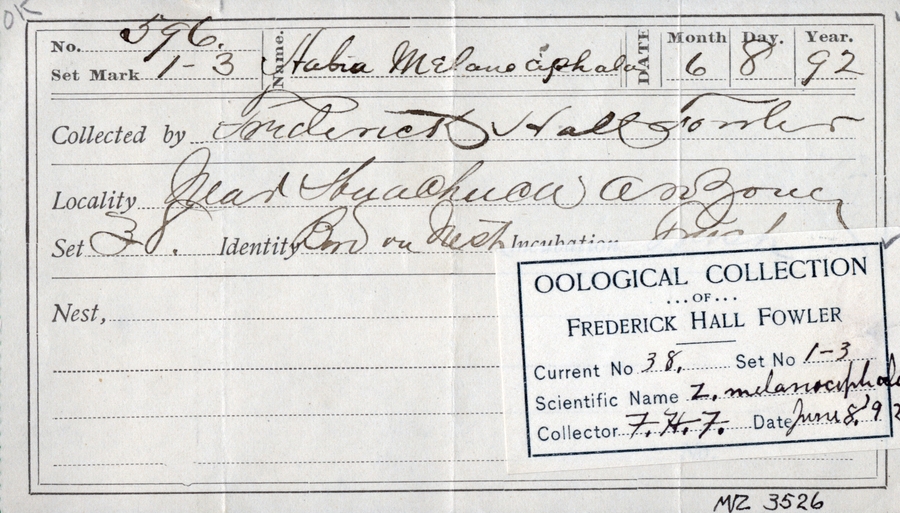 OK
No. 596. Name. Habia Melanocephala DATE Month Day. Year.
Set Mark 1-3 6 8 92
Collected by Frederick Hall Fowler
Locality Near Huachuca Arizona
Set 3 Identity Bird on Nest Incubation Fresh
OOLOGICAL COLLECTION
...OF...
FREDERICK HALL FOWLER
Nest,
Current No 38. Set No 1-3
Scientific Name Z. melanocephala
Collector F.H.F. Date June 8, '92
MVZ 3526